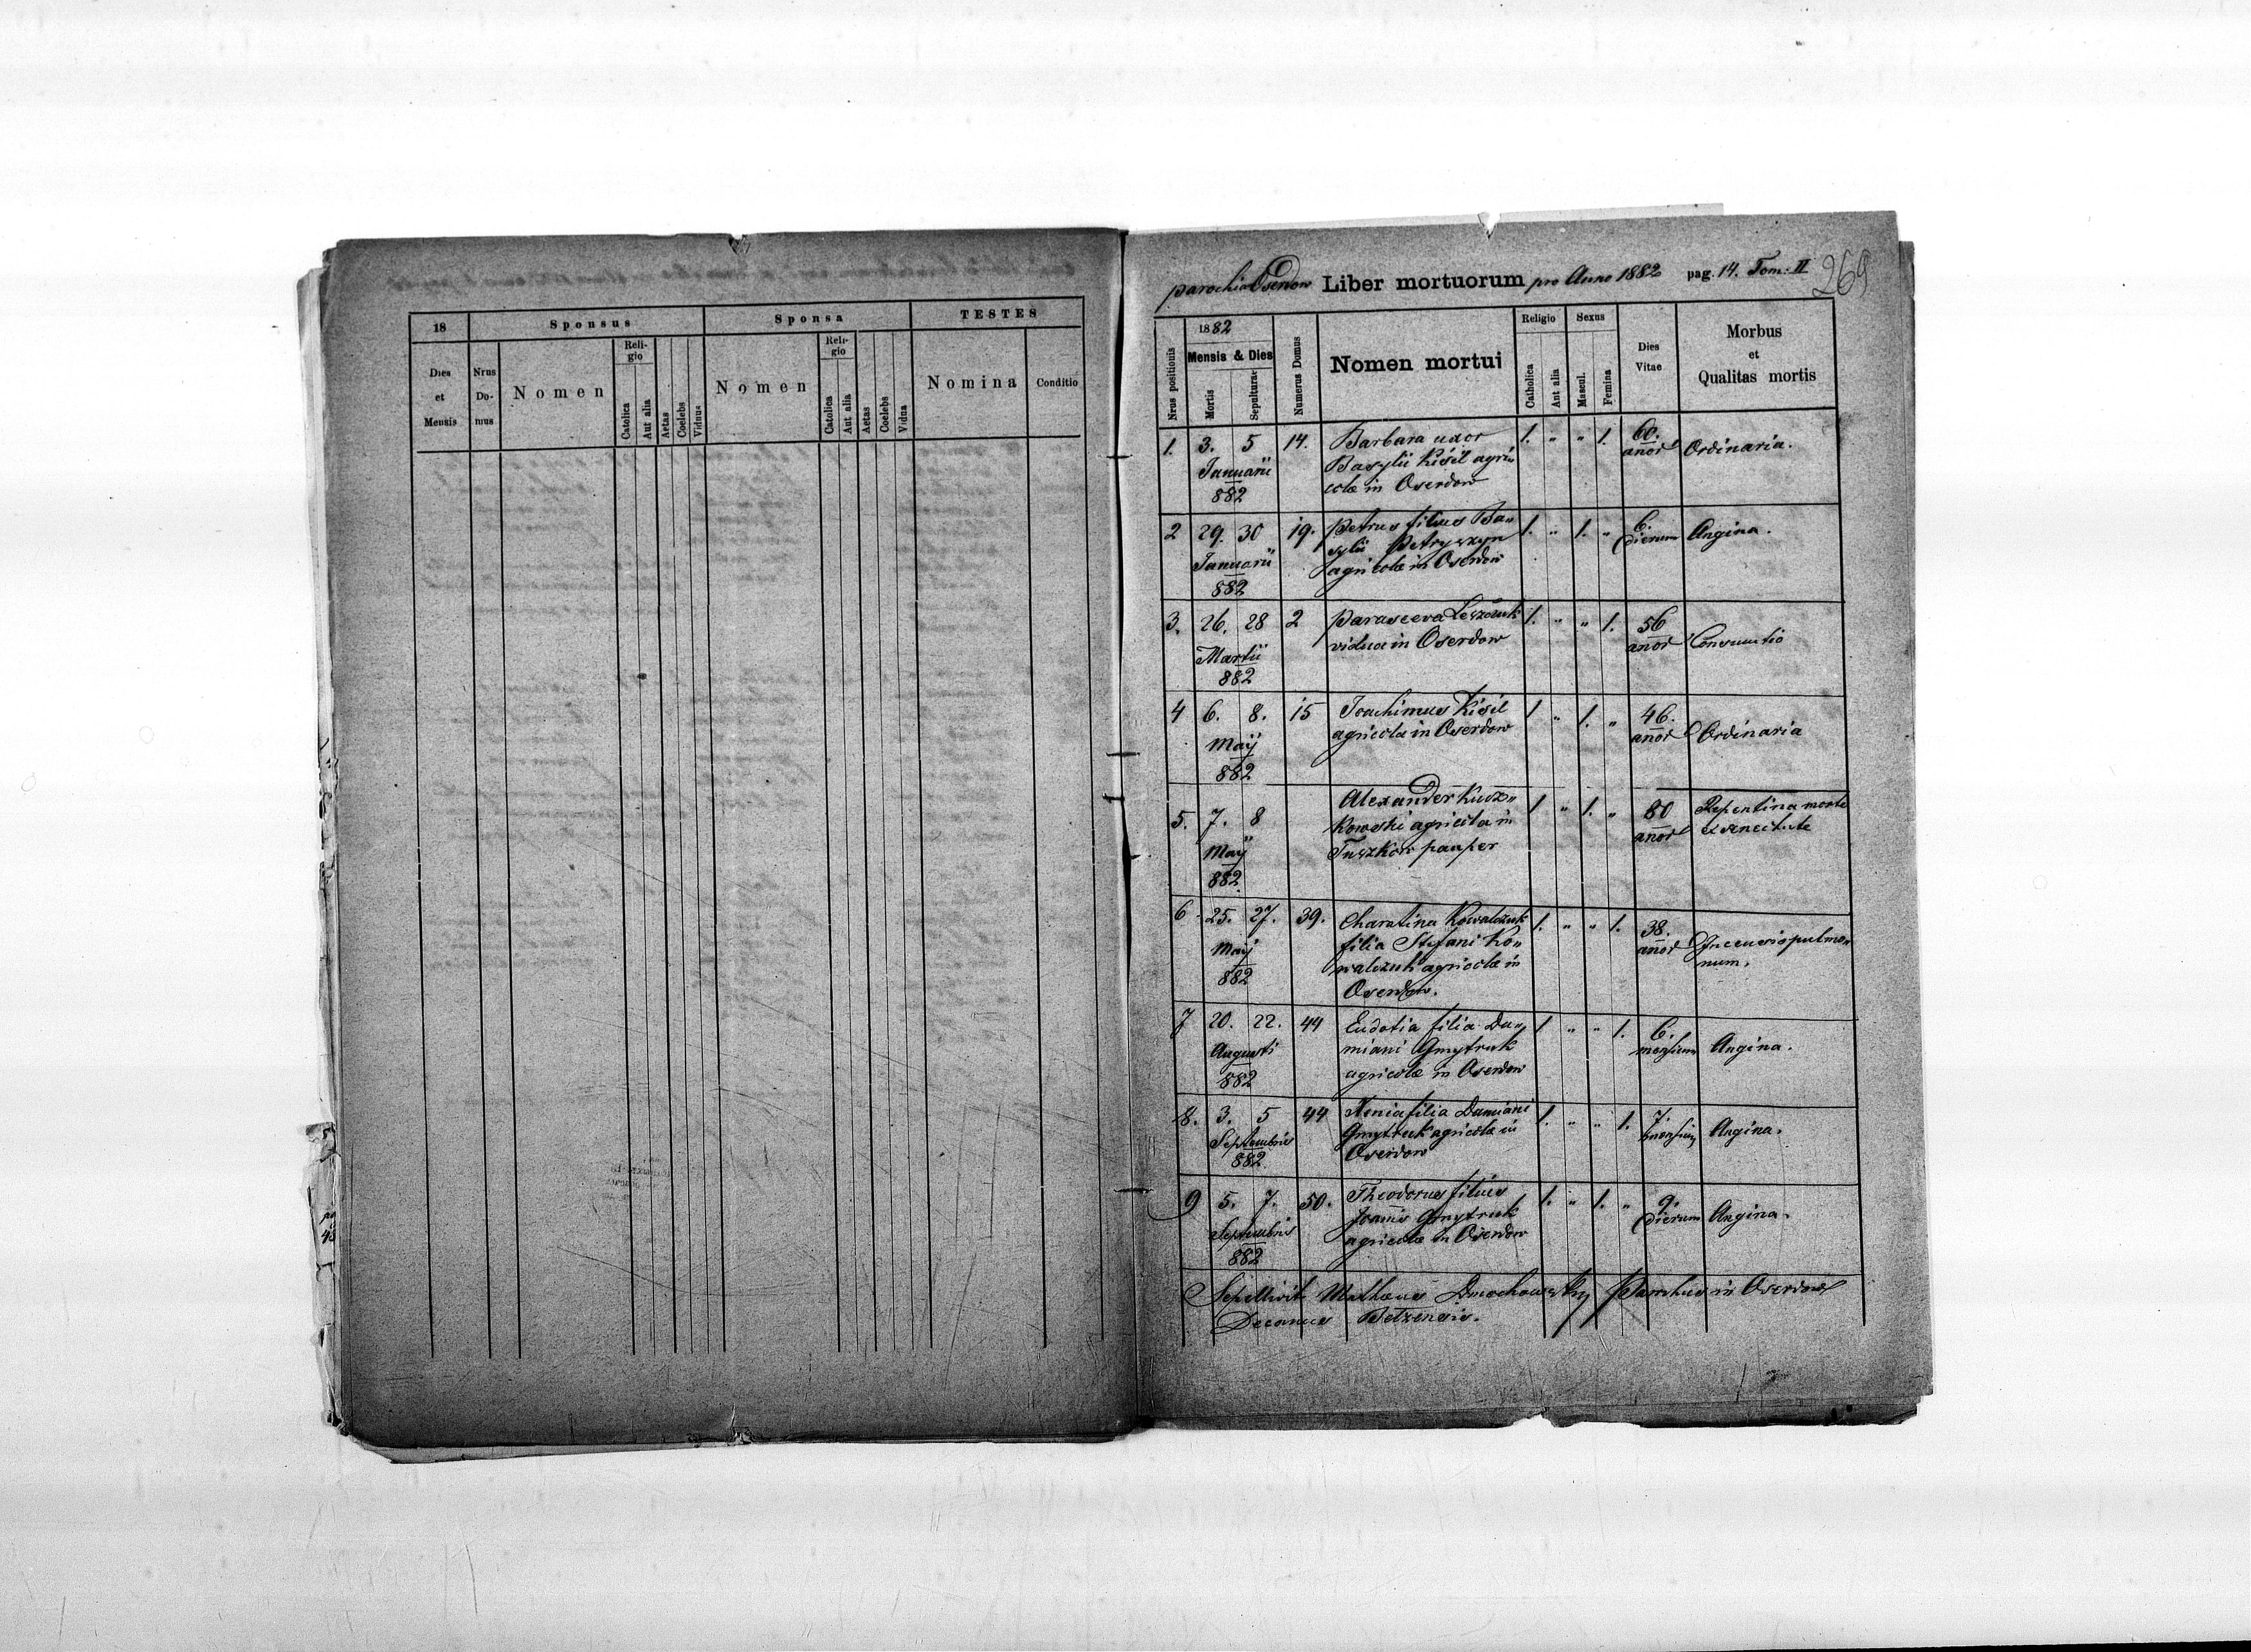 18
Sponsus
Sponsa
TESTES
Dies et Mensis
Nrus Domus
Nomen
Religio
Catolica
Aut alia
Aetas
Coelebs
Viduus
Nomen
Religio
Catolica
Aut alia
Aetas
Coelebs
Vidua
Nomina
Conditio
parochia Oserdow Liber mortuorum pro Anno 1882 pag. 14. Tom: II
269
Nrus positionis
1882
Mensis & Dies
Mortis
Sepulturae
Numerus Domus
Nomen mortui
Religio
Catholica
Aut alia
Sexus
Mascul.
Femina
Dies Vitae
Morbus
et
Qualitas mortis
1. 3. 5 14. Barbara uxor 1. " " 1. 60. Ordinaria.
Januarii Basylii Kisil agri" anor
882 colæ in Oserdow
2 29. 30 19. Petrus filius Ba" 1. " 1. " 6. Angina.
Januarii sylii Petryszyn dierum
882 agricolæ in Oserdow
3. 26. 28 2 Parasceva Leszczuk 1. " " 1. 56
Martii vidua in Oserdow anor Consumtio
882
4 6. 8. 15 Joachimus Kisil 1 " 1. " 46.
Maij agricola in Oserdow anor Ordinaria
882
5. 7. 8 Alexander 1 " 1. " 80 Repentina morte
Maij kowski agricola in anor ex senectute
882. Tuszkow pauper
6 25. 27. 39. Charatina Kowalczuk 1. " " 1. 38.
Maij filia Stefani Ko" anor pulmo"
882 walczuk agricolæ in num.
Oserdow.
7 20. 22. 44 Eudotia filia Da" 1 " " 1. 6.
Augusti miani Gmytruk mensium Angina.
882 agricolæ in Oserdow
8. 3. 5 44 Xenia filia Damiani 1. " " 1. 7.
Septembris Gmytruk agricolæ in mensium Angina.
882 Oserdow
9 5. 7. 50. Theodorus filius 1. " 1. " 9.
Septembris Joannis Gmytruk dierum Angina.
882 agricolæ in Oserdow
Sepellivit Mathæus Dmochowsky Parochus in Oserdow
Decanus Betzensis.